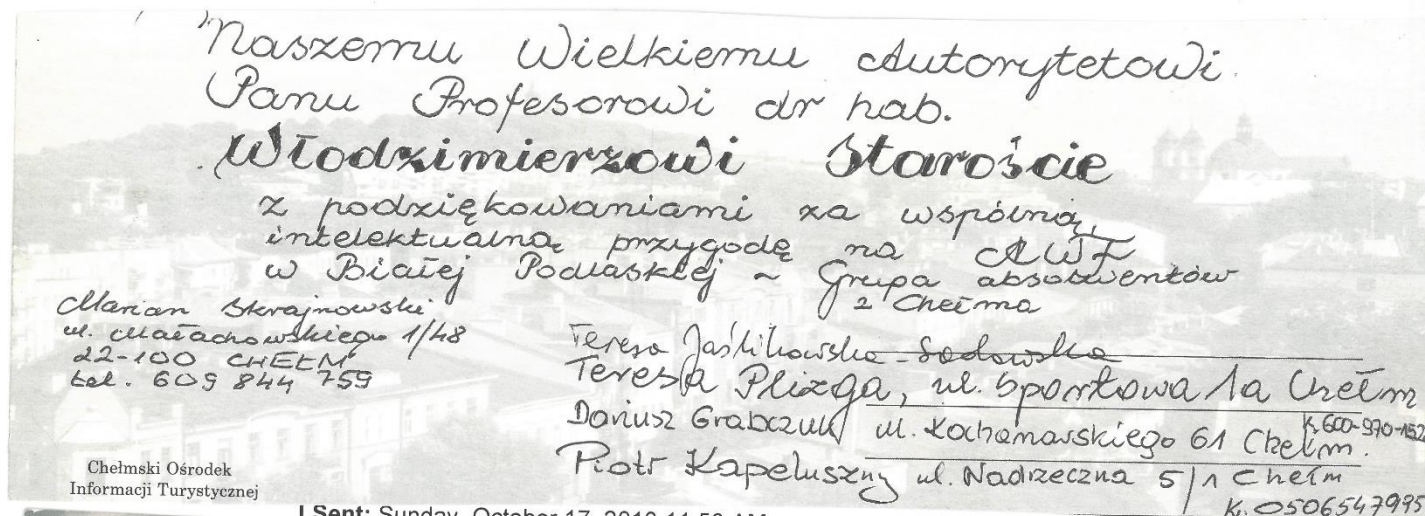 Naszemu Wielkiemu Autorytetowi
Panu Profesorowi dr hab.
Włodzimierzowi Staroście
z podziękowaniami za wspólną,
intelektualną przygodę na AWF
w Białej Podlaskiej ~ Grupa absolwentów
z Chełma
Marian Skrajnowski
ul. Małachowskiego 1/48
22-100 CHEŁM
tel. 609 844 759
Teresa Jaślikowska-Sadowska
Teresa Plizga, ul. Sportowa 1a Chełm
Dariusz Grabczuk ul. Kochanowskiego 61 Chełm.
K. 600-970-152
Piotr Kapeluszny ul. Nadrzeczna 5/1 Chełm
K. 0506547995
Chełmski Ośrodek
Informacji Turystycznej
Sent: Sunday, October 17, 2010 11:50 AM